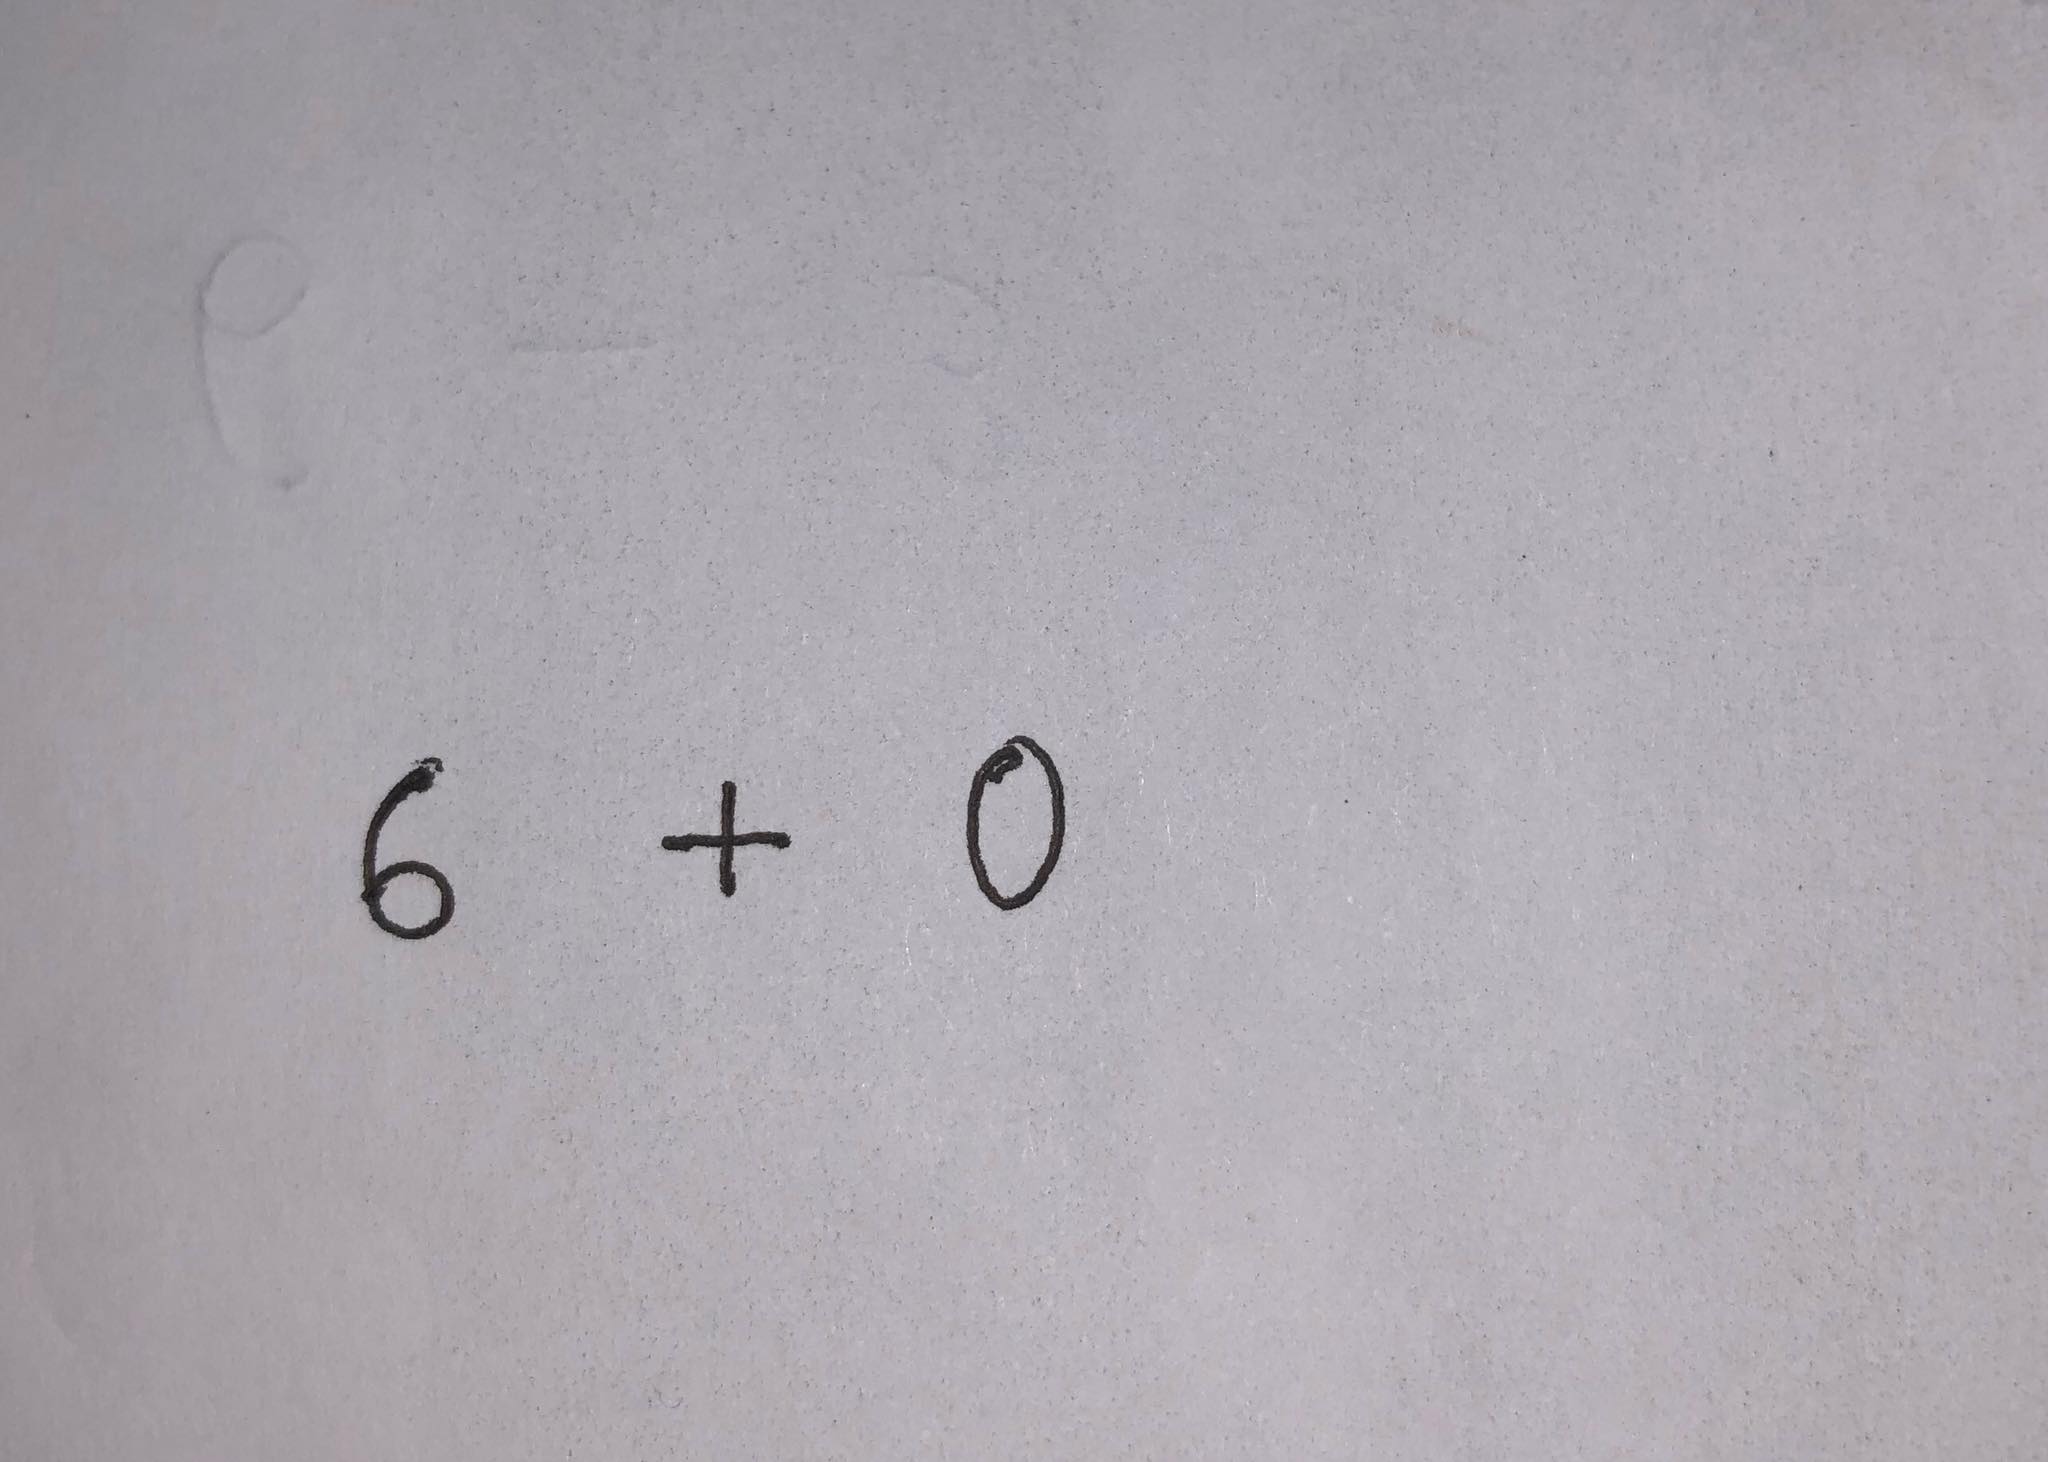 6 + 0